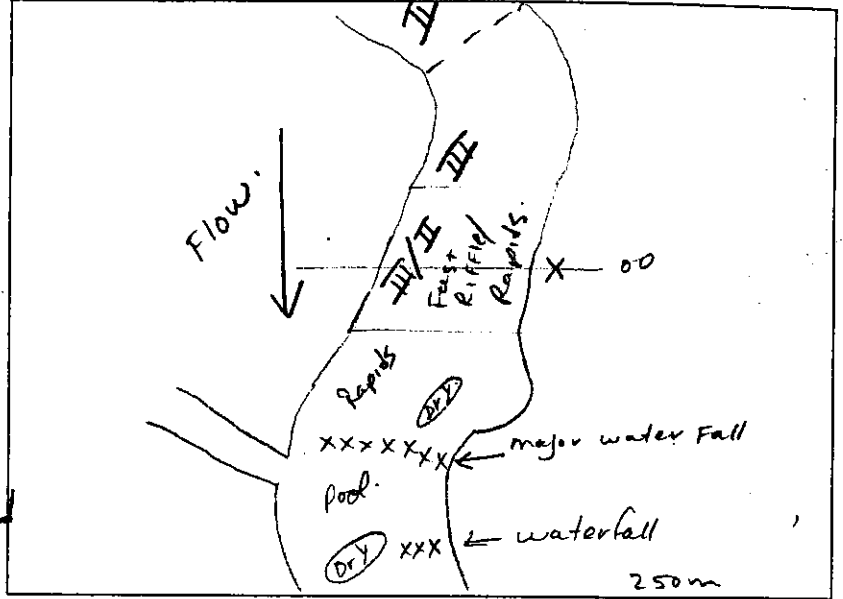 II
III
Flow.
III/II
Fast
Riffle/
Rapids.
X
00
Rapids
Dry
xxxxxxx
major water Fall
Pool.
Dry
xxx
waterfall
250m